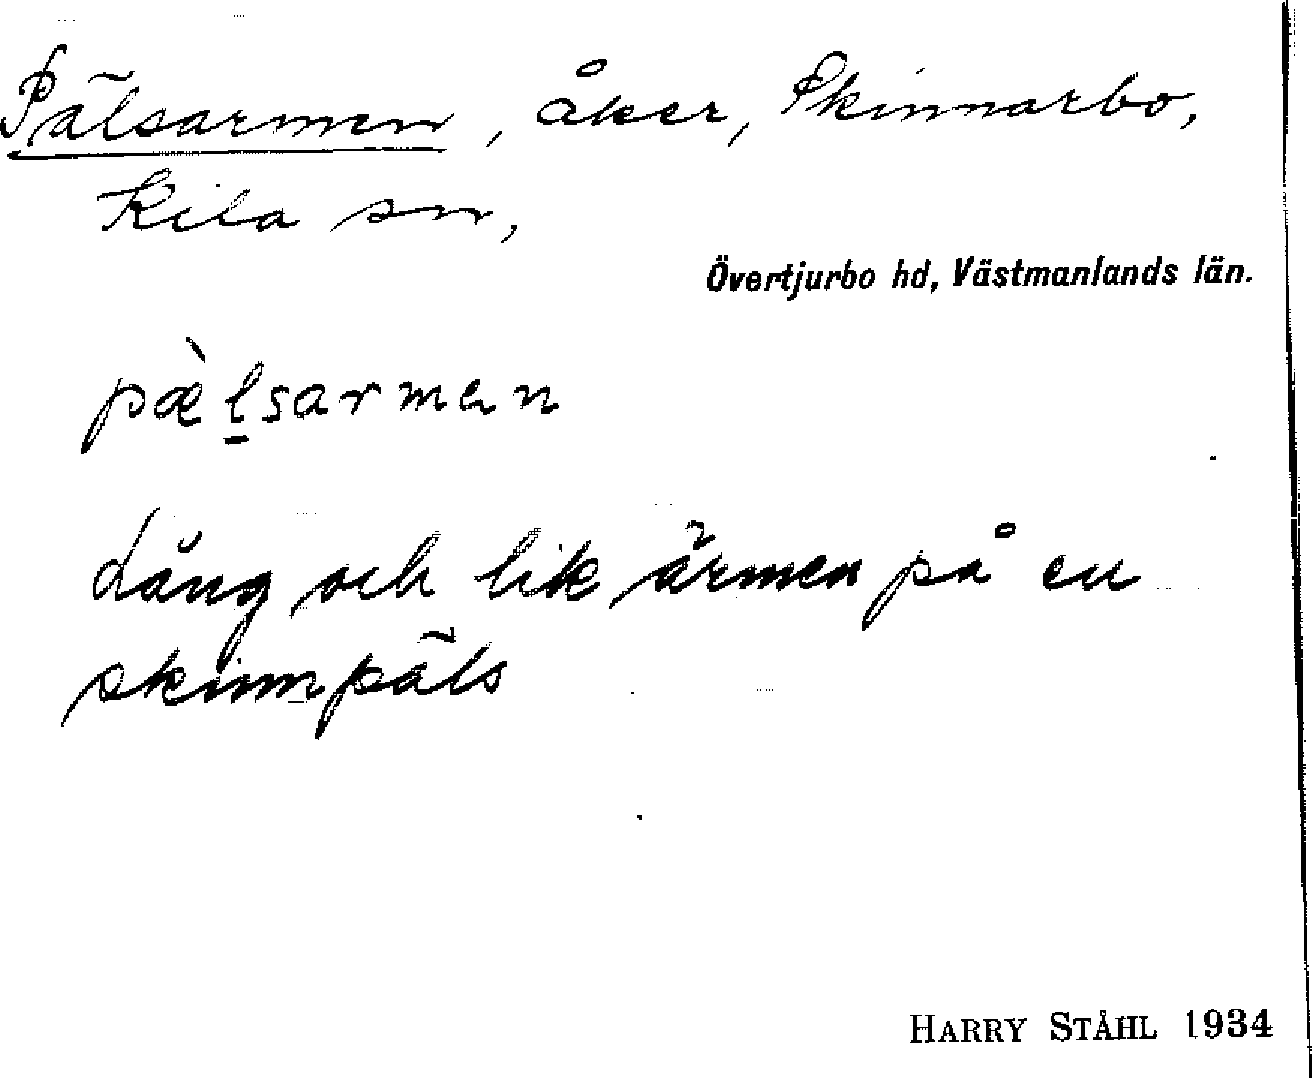 Pälsarmen, åker, Skinnarbo,
Kila sn,
Övertjurbo hd, Västmanlands län.
pæ̀l̠sarmən
Lång och lik ärmen på en
skinnpäls
HARRY STÅHL 1934